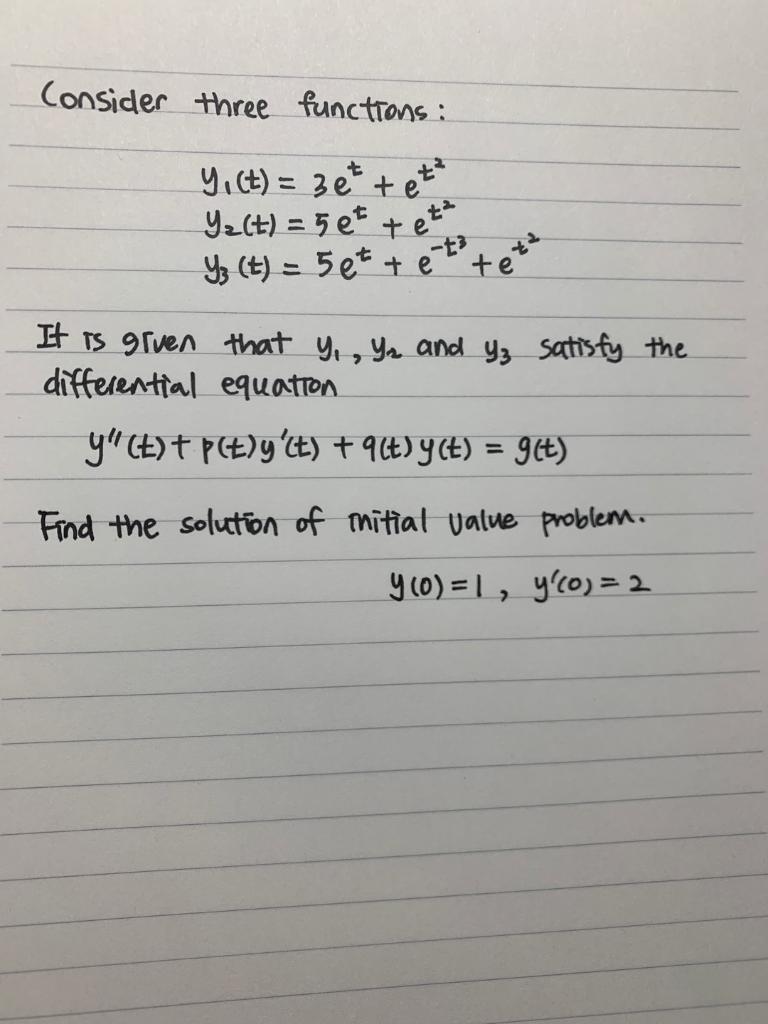 Consider three functions:
y₁(t) = 3e^t + e^t²
y₂(t) = 5e^t + e^t²
y₃(t) = 5e^t + e^-t³ + e^t²
It is given that y₁, y₂ and y₃ satisfy the
differential equation
y''(t) + p(t)y'(t) + q(t)y(t) = g(t)
Find the solution of initial value problem.
y(0) = 1, y'(0) = 2